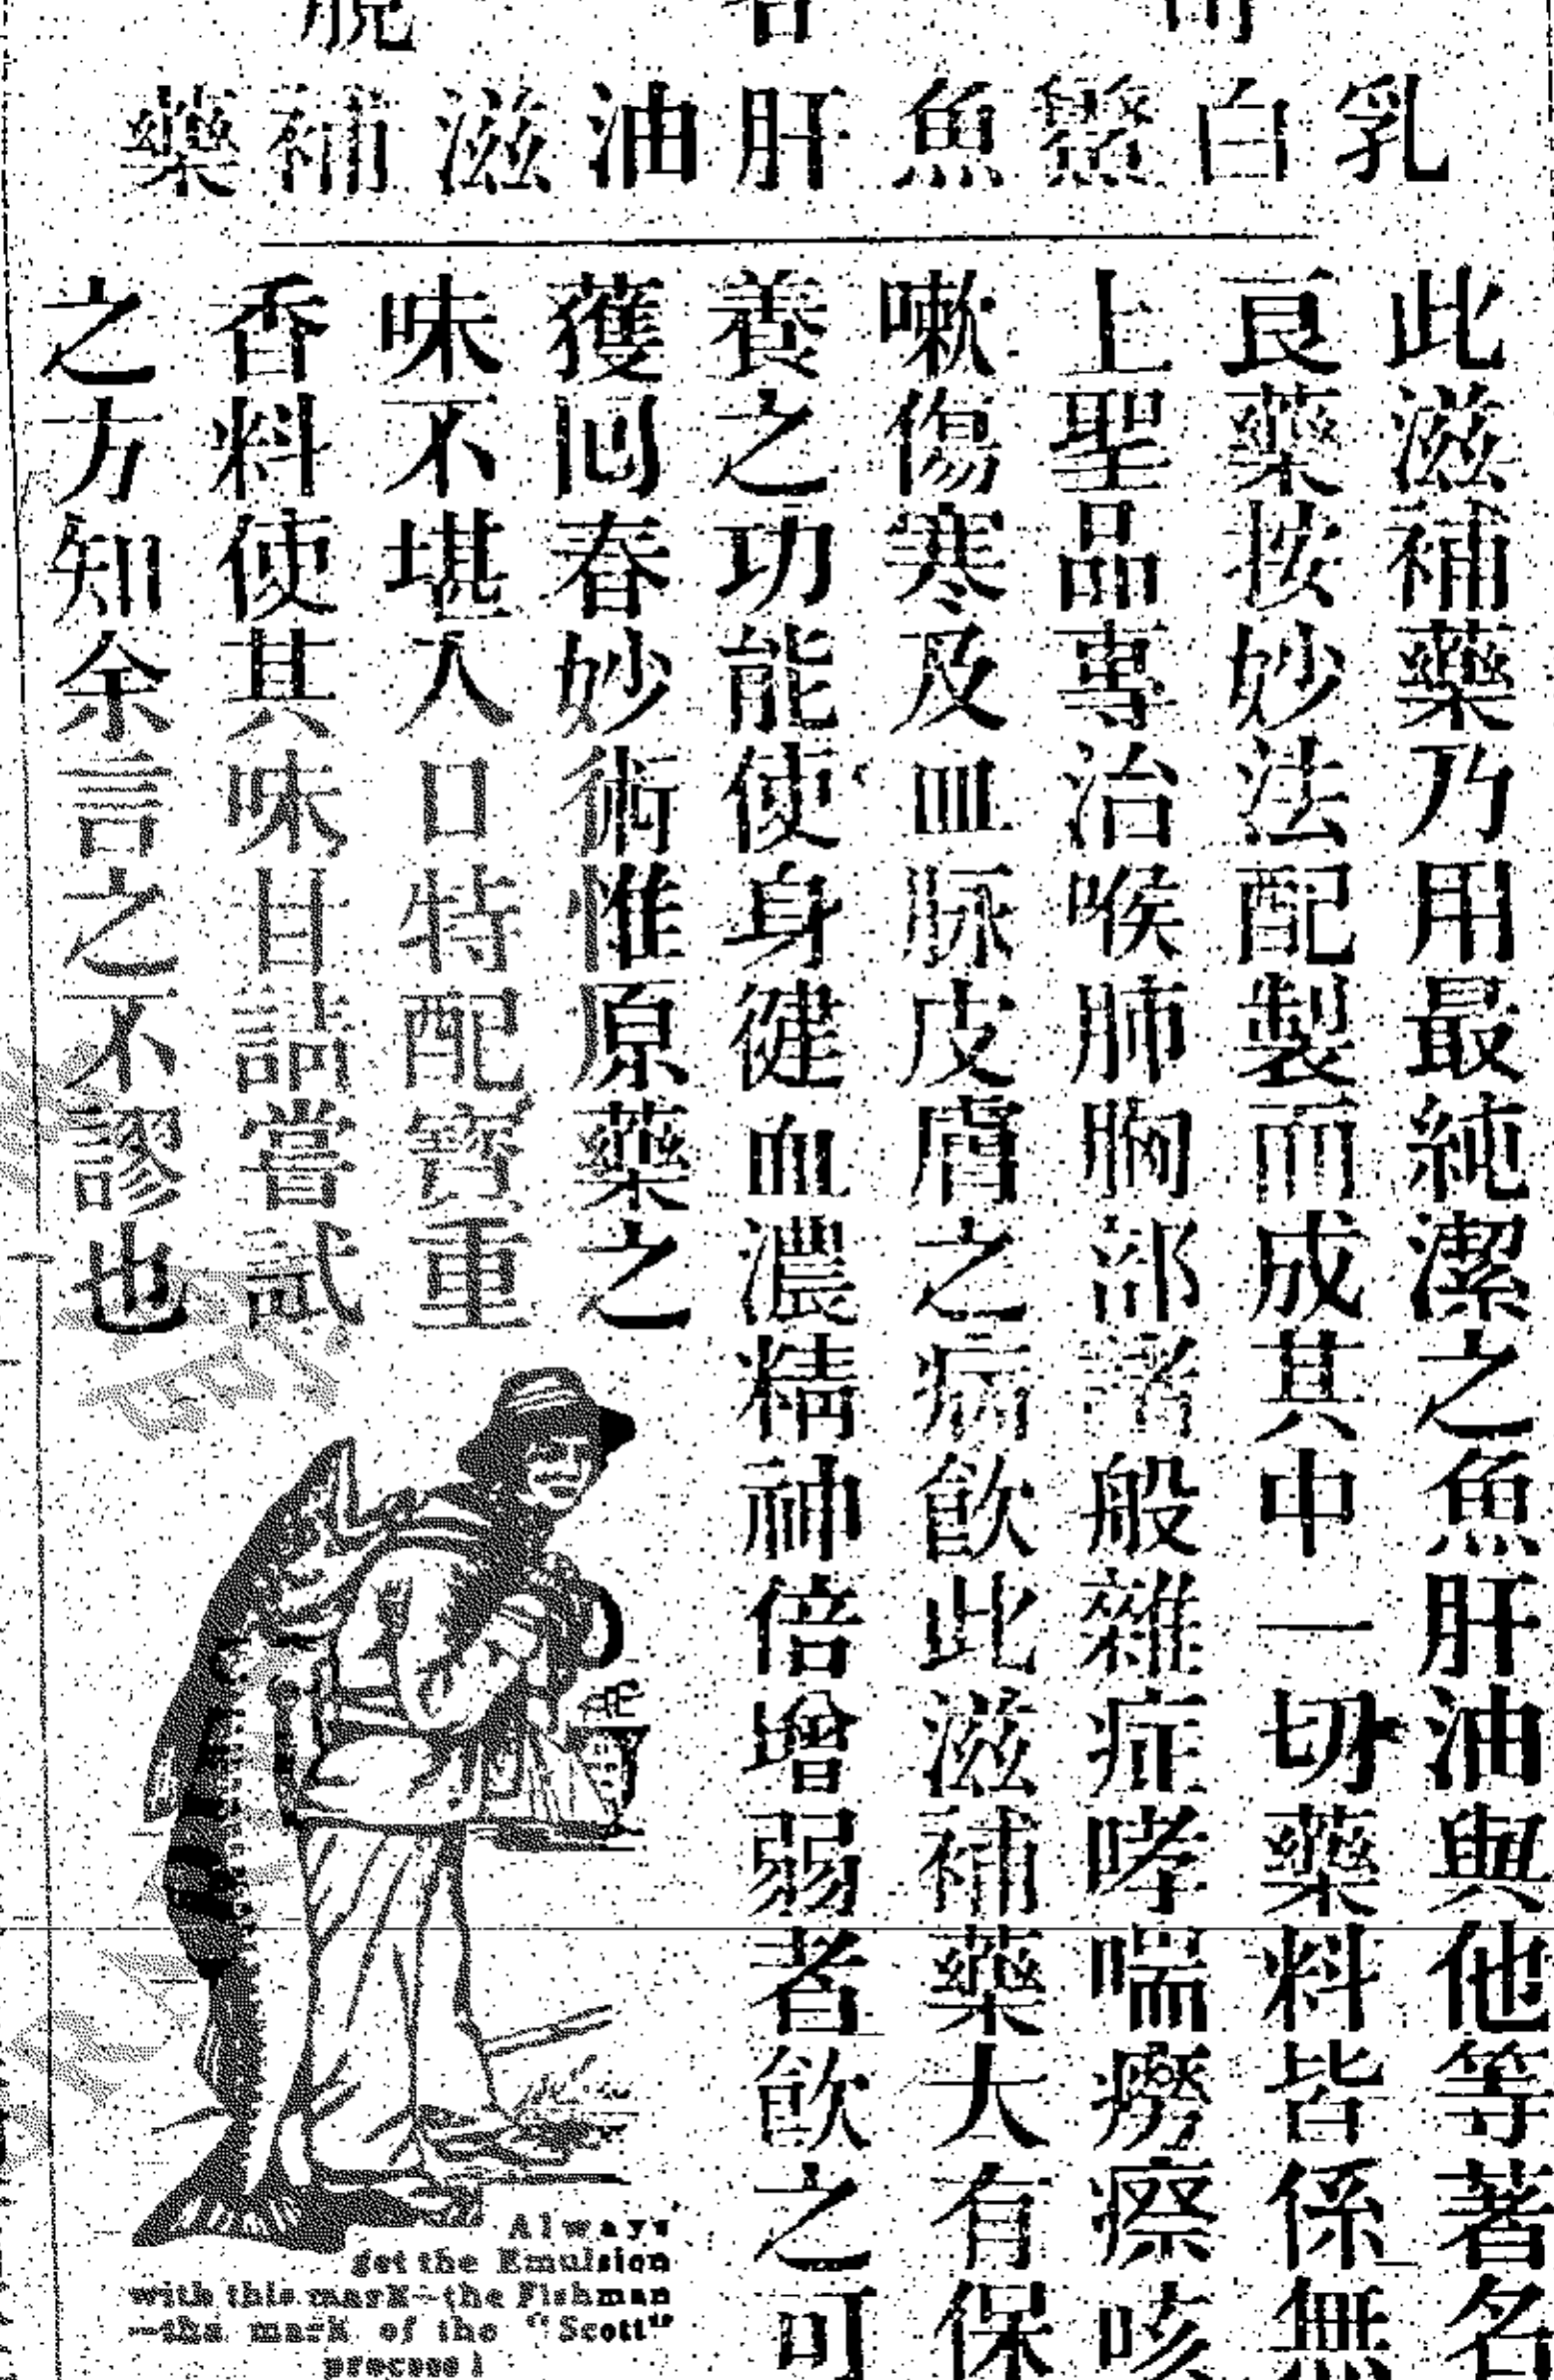 乳白鰵魚肝油滋補藥
此滋補藥乃用最純潔之魚肝油與他等著名
良藥按妙法配製而成其中一切藥料皆係無
上聖品專治喉肺胸部諸般雜症哮喘癆瘵咳
嗽傷寒及血脉皮膚之病飮此滋補藥大有保
養之功能使身健血濃精神倍增弱者飮之可
獲回春妙術惟原藥之
味不堪入口特配寶重
香料使其味甘請嘗試
之方知余言之不謬也
Always
get the Emulsion
with this mark—the Fishman
—the mark of the "Scott"
process!